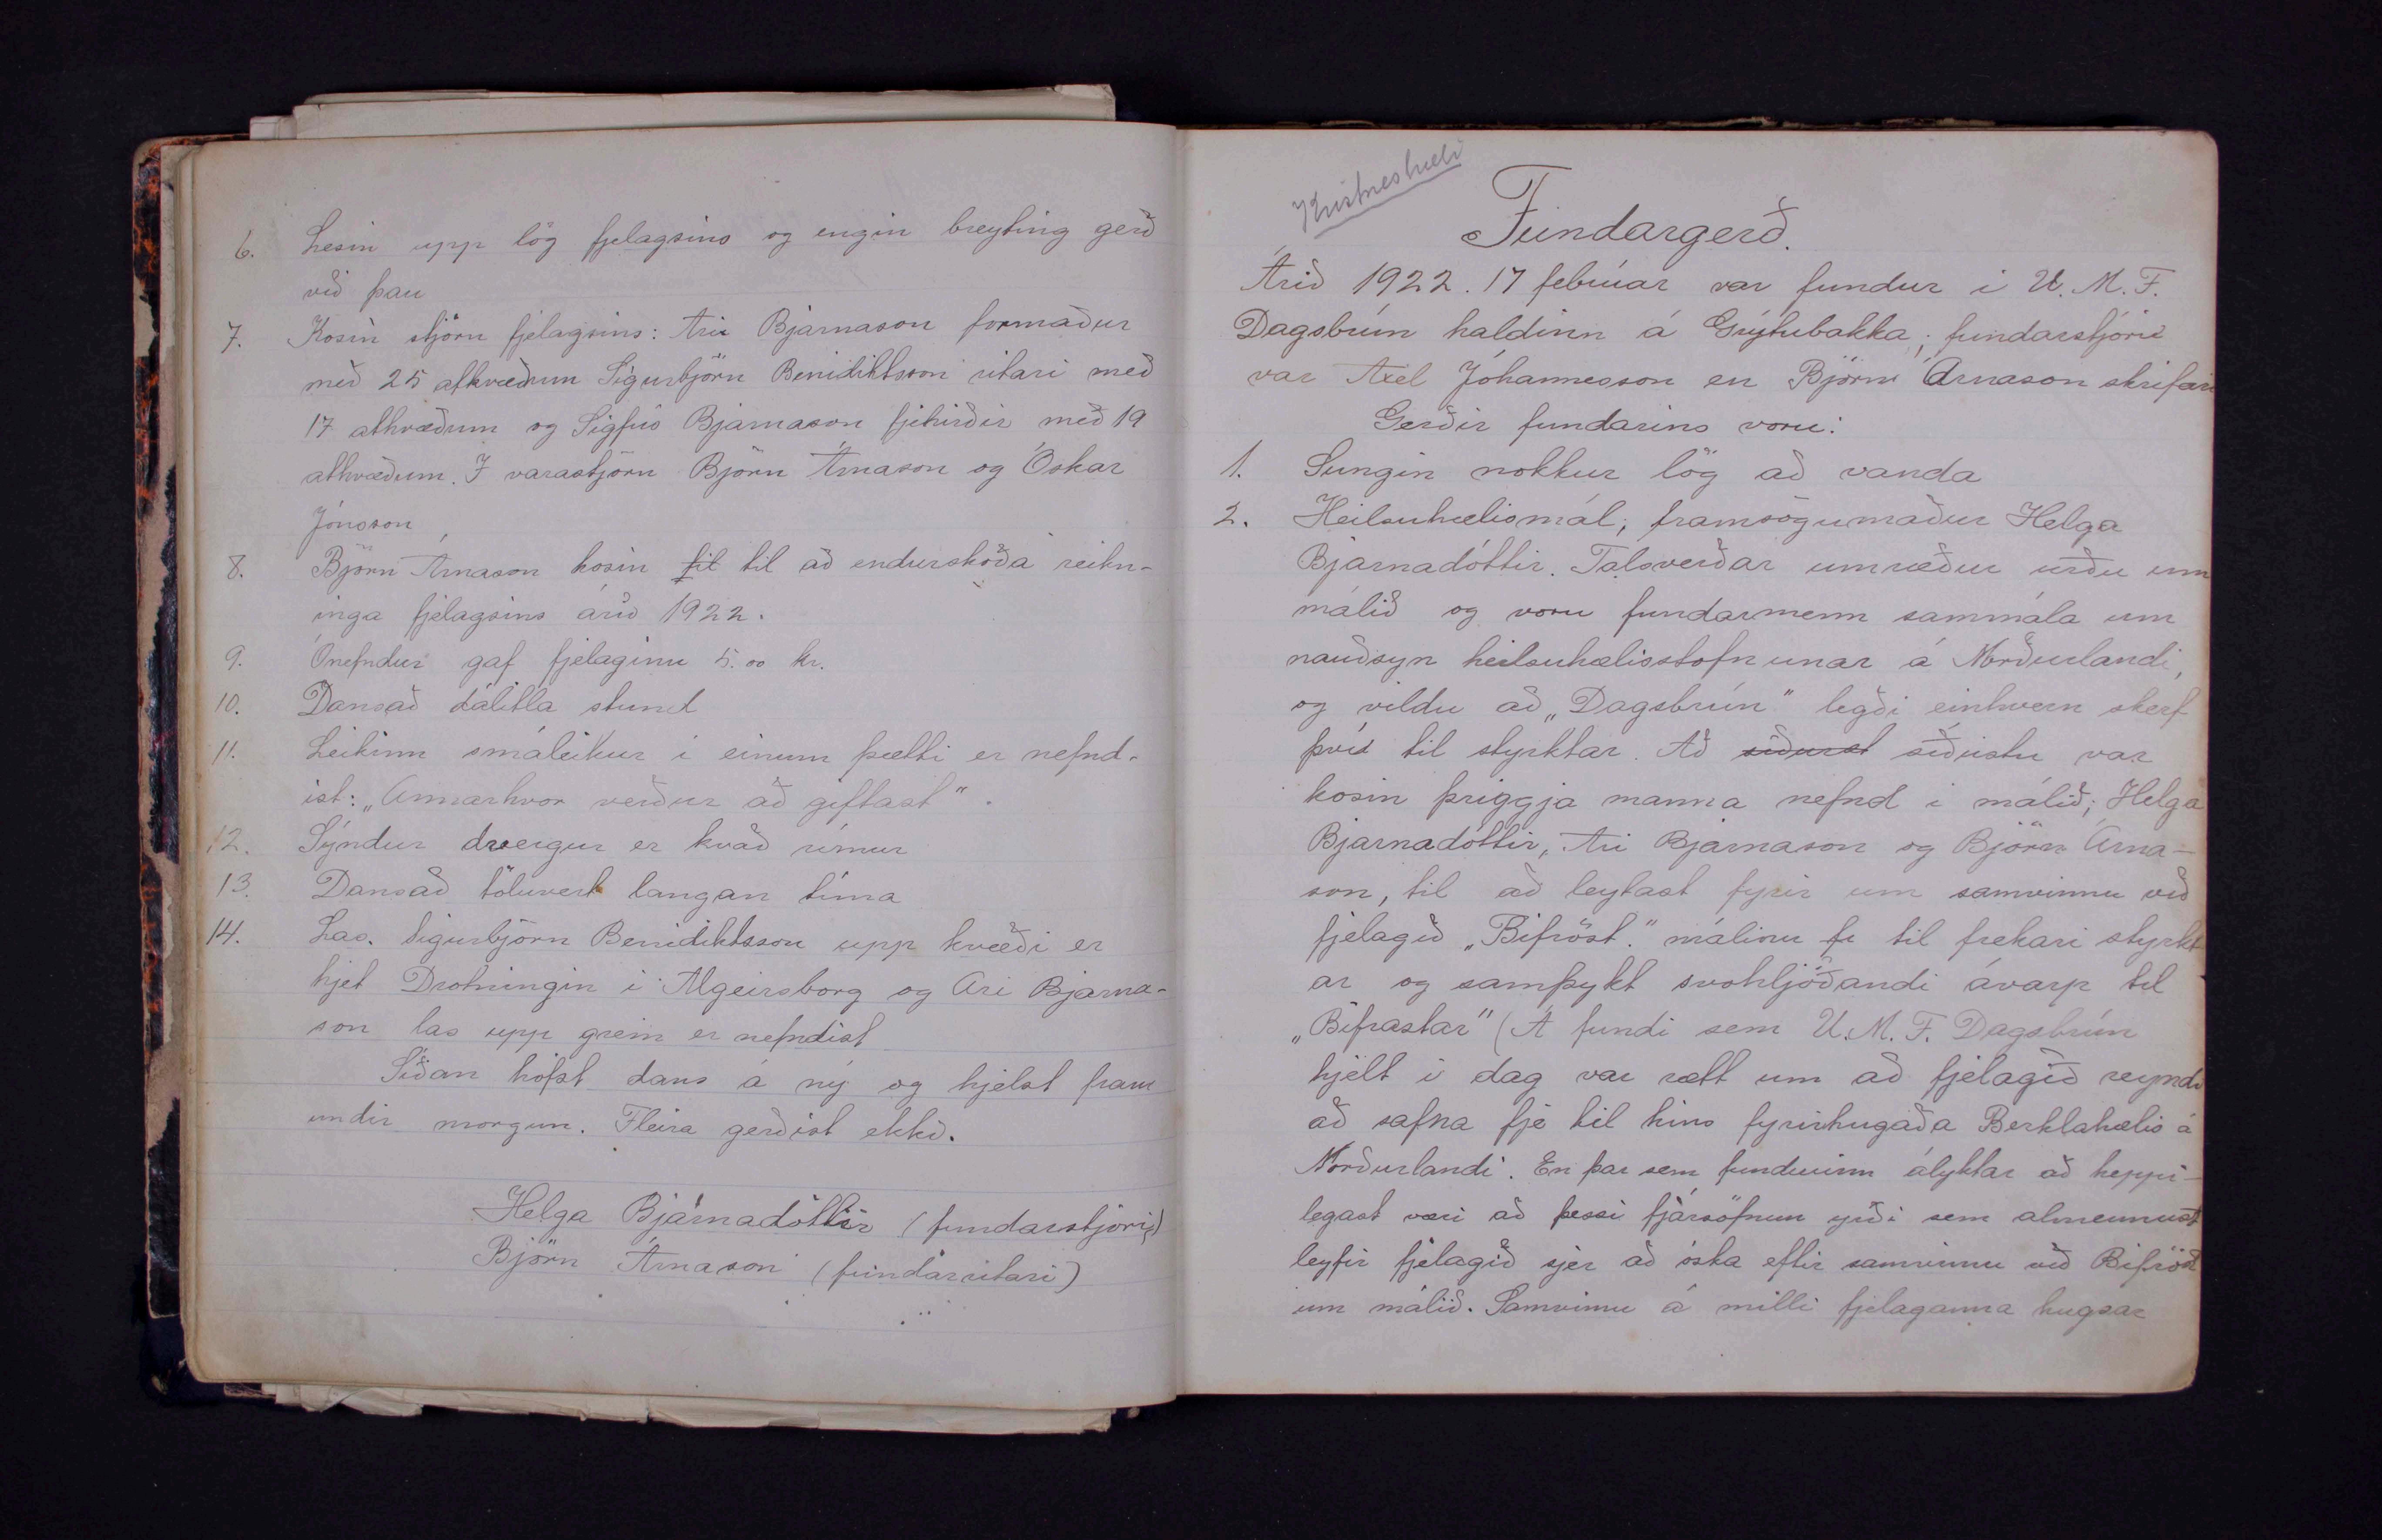 6. Lesin upp lög fjelagsins og engin breyting gerð
við þau
7. Kosin stjórn fjelagsins: Ari Bjarnason formaður
með 25 atkvæðum Sigurbjörn Benidiktsson ritari með
17 atkvæðum og Sigfús Bjarnason fjehirðir með 19
atkvæðum. Í varastjórn Björn Árnason og Óskar
Jónsson
8. Björn Árnason kosin til til að endurskoða reikn-
inga fjelagsins árið 1922.
9. Ónefndur gaf fjelaginu 5.00 kr.
10. Dansað dálitla stund
11. Leikinn smáleikur í einum þætti er nefnd-
ist: „Annarhvor verður að giftast".
12. Sýndur dvergur er kvað rímur
13. Dansað töluvert langan tíma
14. Las. Sigurbjörn Benidiktsson upp kvæði er
hjet Drotningin í Algeirsborg og Ari Bjarna-
son las upp grein er nefndist
Síðan hófst dans á ný og hjelst fram
undir morgun. Fleira gerðist ekki.
Helga Bjarnadóttir (fundarstjóri)
Björn Árnason (fundarritari)
Kristneshæli
Fundargerð.
Árið 1922. 17 febrúar var fundur í U. M. F.
Dagsbrún haldinn á Grýtubakka; fundarstjóri
var Axel Jóhannesson en Björn Árnason skrifari
Gerðir fundarins voru:
1. Sungin nokkur lög að vanda
2. Heilsuhælismál; framsögumaður Helga
Bjarnadóttir. Talsverðar umræður urðu um
málið og voru fundarmenn sammála um
nauðsyn heilsuhælisstofnunar á Norðurlandi,
og vildu að „Dagsbrún" legði einhvern skerf
því til styrktar. Að síðurst síðustu var
kosin þriggja manna nefnd í málið; Helga
Bjarnadóttir, Ari Bjarnason og Björn Árna-
son, til að leytast fyrir um samvinnu við
fjelagið „Bifröst." málinu fr til frekari styrkt
ar og samþykt svohljóðandi ávarp til
„Bifrastar" (Á fundi sem U.M.F. Dagsbrún
hjelt í dag var rætt um að fjelagið reyndi
að safna fje til hins fyrirhugaða Berklahælis á
Norðurlandi. En þar sem fundurinn ályktar að heppi-
legast væri að þessi fjársöfnun yrði sem almennust
leyfir fjelagið sjer að óska eftir samvinnu við Bifröst
um málið. Samvinnu á milli fjelaganna hugsar